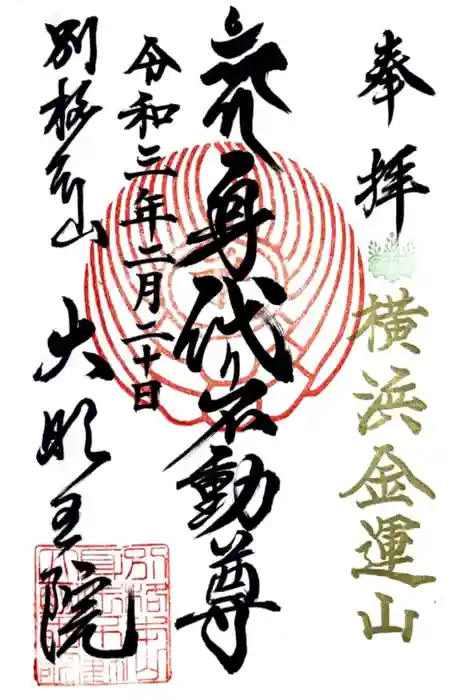 奉拝
横浜金運山
身代り不動尊
令和三年二月二十日
別格本山
大明王院